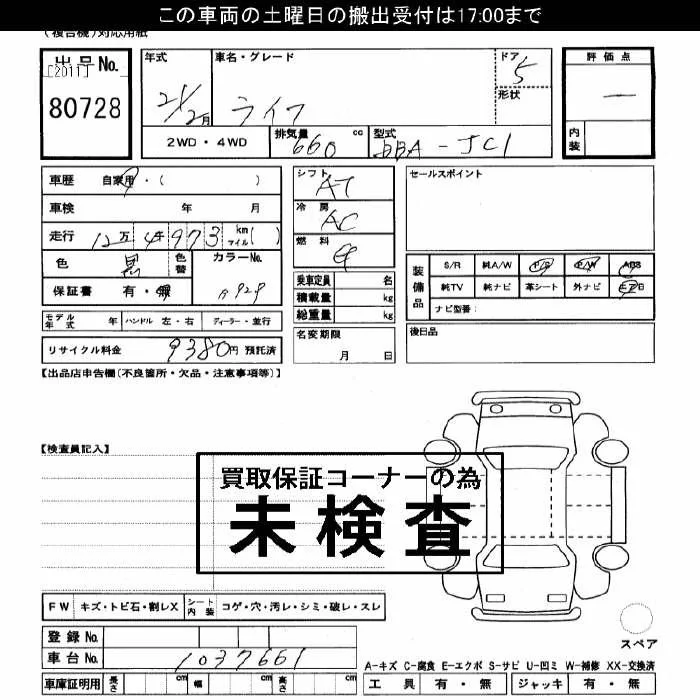 この車両の土曜日の搬出受付は17:00まで
(複合機)対応用紙
出品No.
[2011]
80728
年式
21/2月
車名・グレード
ライフ
ドア
5
形状
評価点
—
内装
2WD・4WD
排気量 660 cc
型式 DBA-JC1
車歴 自家用・( )
車検 年 月
走行 12万4千973 km マイル( )
色 黒 色替 カラーNo.
保証書 有・無 B92P
モデル年式 年 ハンドル 左・右 ディーラー・並行
リサイクル料金 9380円 預託済
シフト AT
冷房 AC
燃料
乗車定員 名
積載量 kg
総重量 kg
名変期限
月 日
セールスポイント
装備品
S/R 純A/W P/S P/W ABS
純TV 純ナビ 革シート 外ナビ
ナビ型番:
後日品
【出品店申告欄(不良箇所・欠品・注意事項等)】
【検査員記入】
買取保証コーナーの為
未検査
FW キズ・トビ石・割レX シート内装 コゲ・穴・汚レ・シミ・破レ・スレ
登録No.
車台No. 1037661
車庫証明用 長さ cm 幅 cm 高さ cm
スペア
A-キズ C-腐食 E-エクボ S-サビ U-凹ミ W-補修 XX-交換済
工具 有・無 ジャッキ 有・無